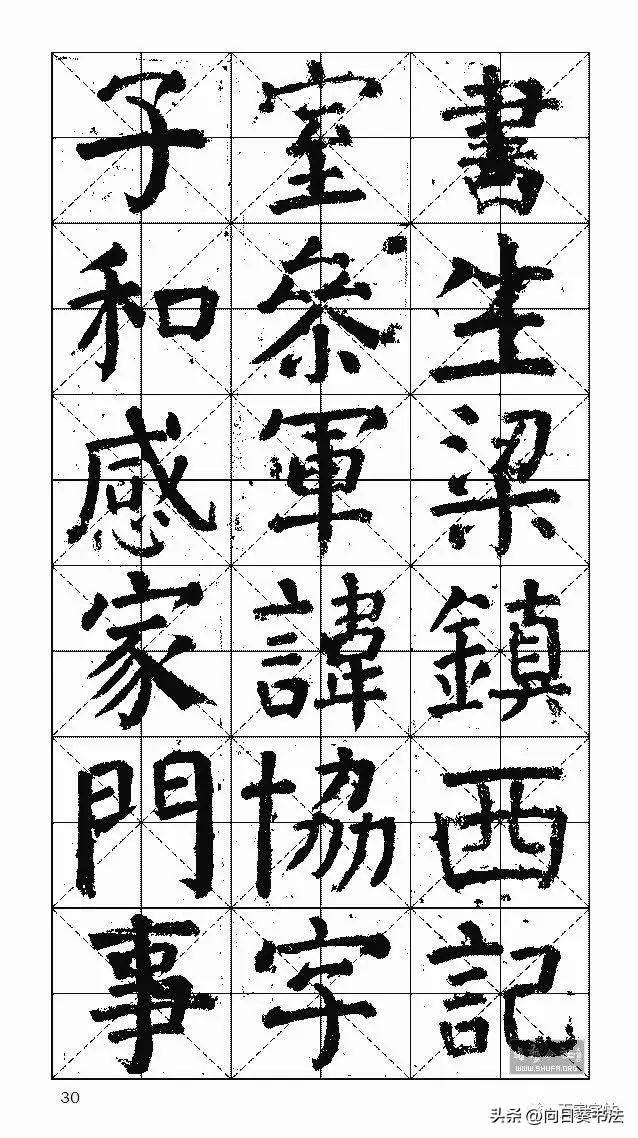 書生梁鎮西記
室叅軍諱協字
子和感家門事
30
WWW.SHUFA.ORG
头条 @向日葵书法